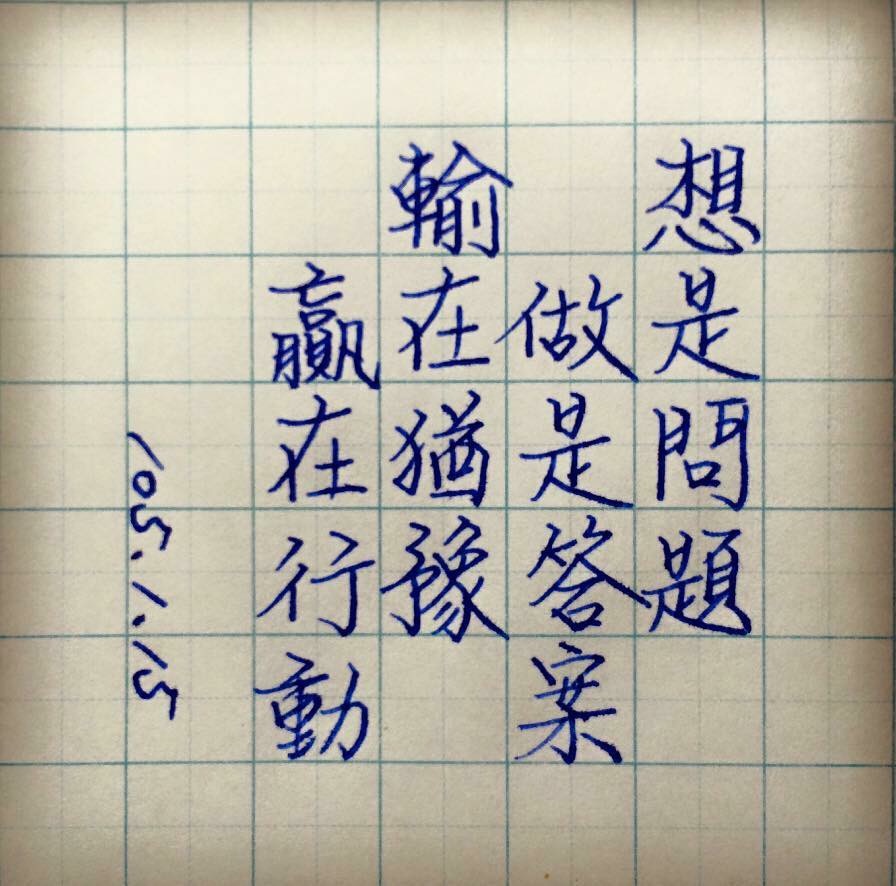 想是問題
做是答案
輸在猶豫
贏在行動
105.1.15